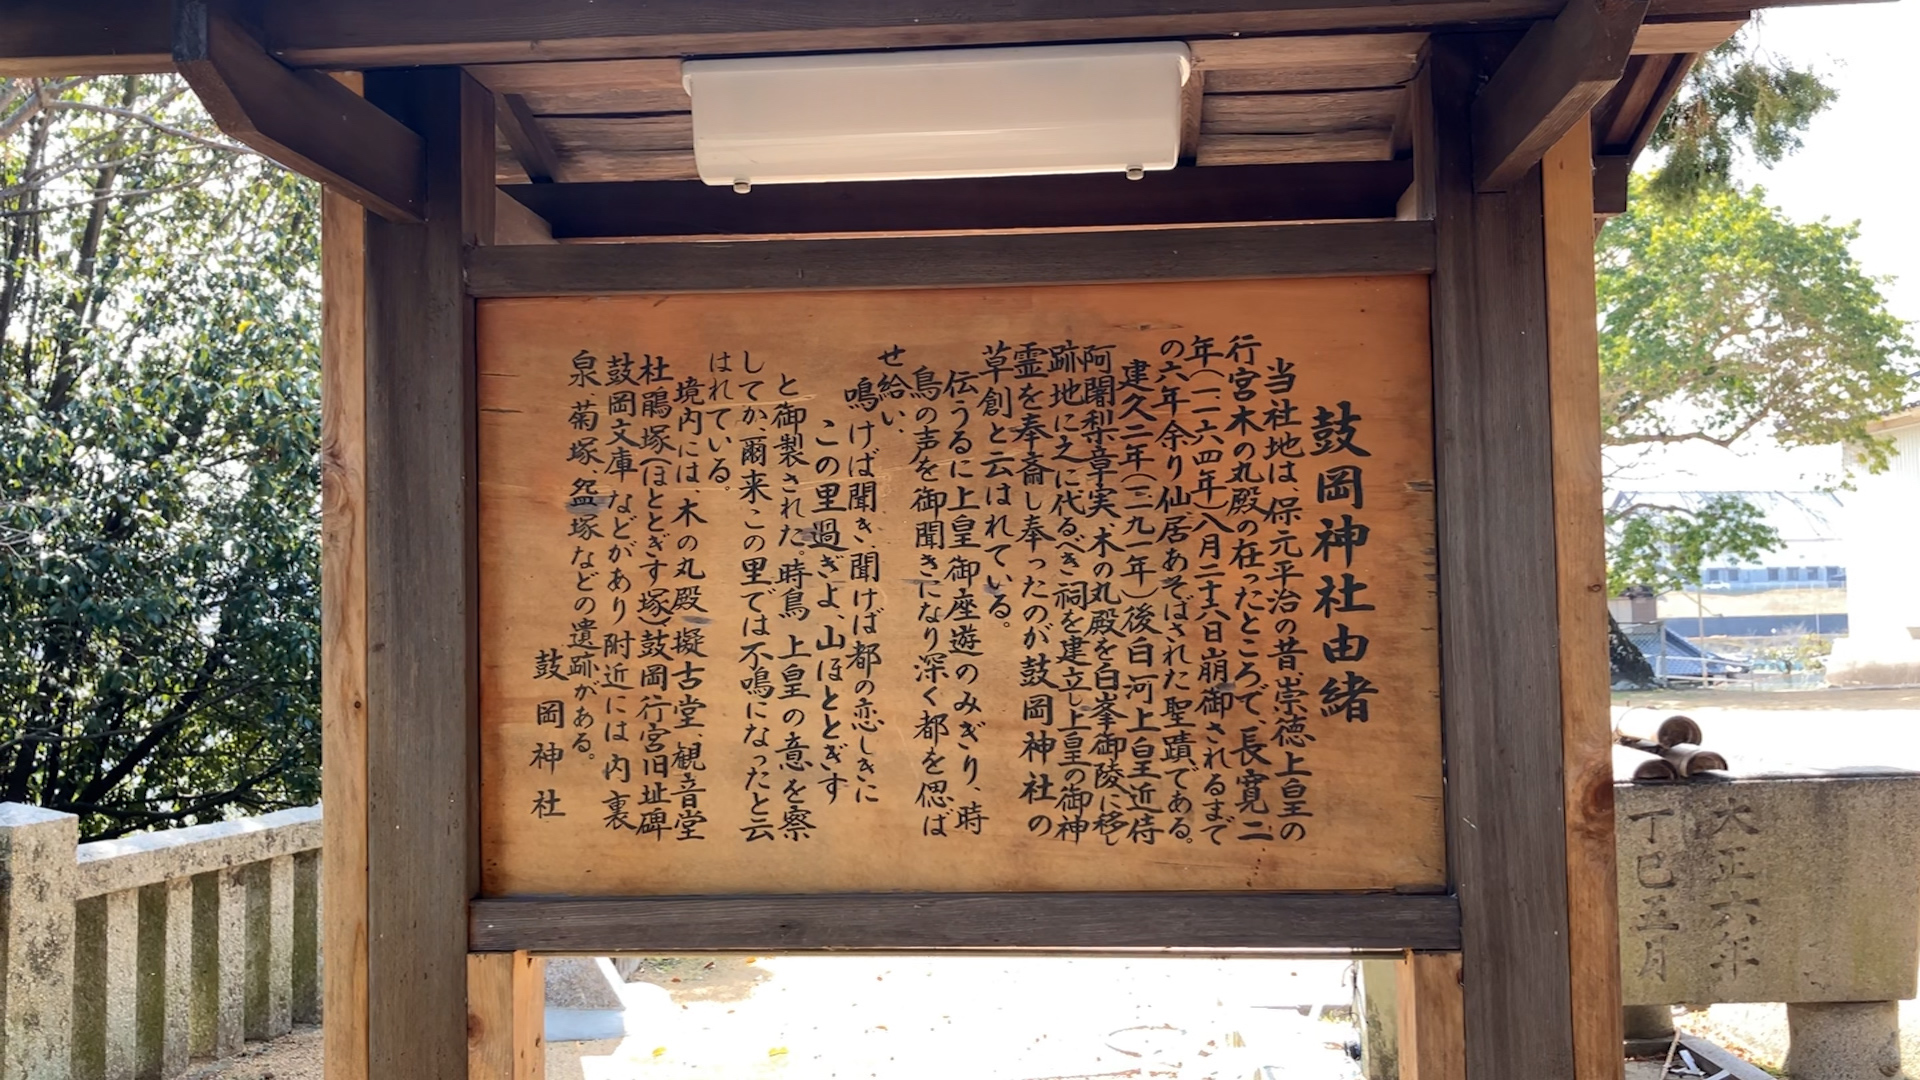 鼓岡神社由緒
当社地は、保元平治の昔、崇徳上皇の
行宮木の丸殿の在ったところで、長寛二
年(一一六四年)八月二十六日崩御されるまで
の六年余り仙居あそばされた聖蹟である。
建久二年(一一九一年)後白河上皇近侍
阿闍梨章実、木の丸殿を白峯御陵に移し
跡地に之に代るべき祠を建立し上皇の御神
霊を奉斎し奉ったのが鼓岡神社の
草創と云はれている。
伝うるに上皇御座遊のみぎり、時
鳥の声を御聞きになり深く都を偲ば
せ給い、
鳴けば聞き、聞けば都の恋しきに
この里過ぎよ、山ほととぎす
と御製された。時鳥上皇の意を察
してか、爾来この里では不鳴になったと云
はれている。
境内には、木の丸殿、擬古堂、観音堂
杜鵑塚(ほととぎす塚)鼓岡行宮旧址碑
鼓岡文庫などがあり附近には内裏
泉、菊塚、盌塚などの遺跡がある。
鼓岡神社
大正六年
丁巳五月